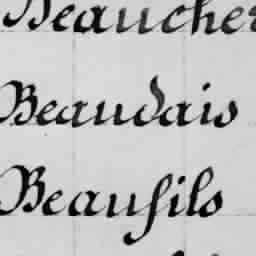 Beaucher
Beaudais
Beaufils